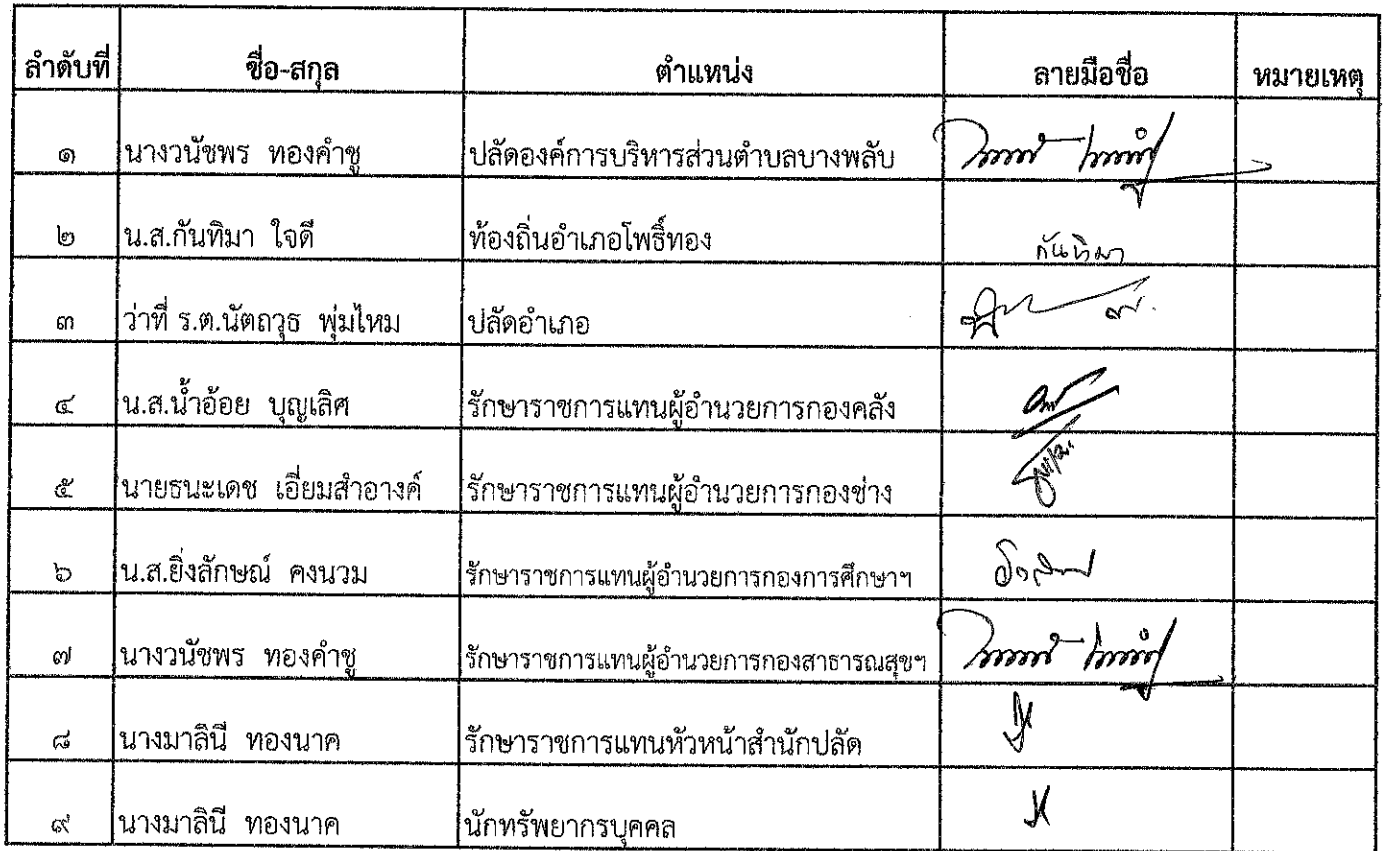 ลำดับที่ ชื่อ-สกุล ตำแหน่ง ลายมือชื่อ หมายเหตุ
๑ นางวนัชพร ทองคำชู ปลัดองค์การบริหารส่วนตำบลบางพลับ
๒ น.ส.กันทิมา ใจดี ท้องถิ่นอำเภอโพธิ์ทอง กันทิมา
๓ ว่าที่ ร.ต.นัตถวุธ พุ่มไหม ปลัดอำเภอ
๔ น.ส.น้ำอ้อย บุญเลิศ รักษาราชการแทนผู้อำนวยการกองคลัง
๕ นายธนะเดช เอี่ยมสำอางค์ รักษาราชการแทนผู้อำนวยการกองช่าง
๖ น.ส.ยิ่งลักษณ์ คงนวม รักษาราชการแทนผู้อำนวยการกองการศึกษาฯ
๗ นางวนัชพร ทองคำชู รักษาราชการแทนผู้อำนวยการกองสาธารณสุขฯ
๘ นางมาลินี ทองนาค รักษาราชการแทนหัวหน้าสำนักปลัด
๙ นางมาลินี ทองนาค นักทรัพยากรบุคคล